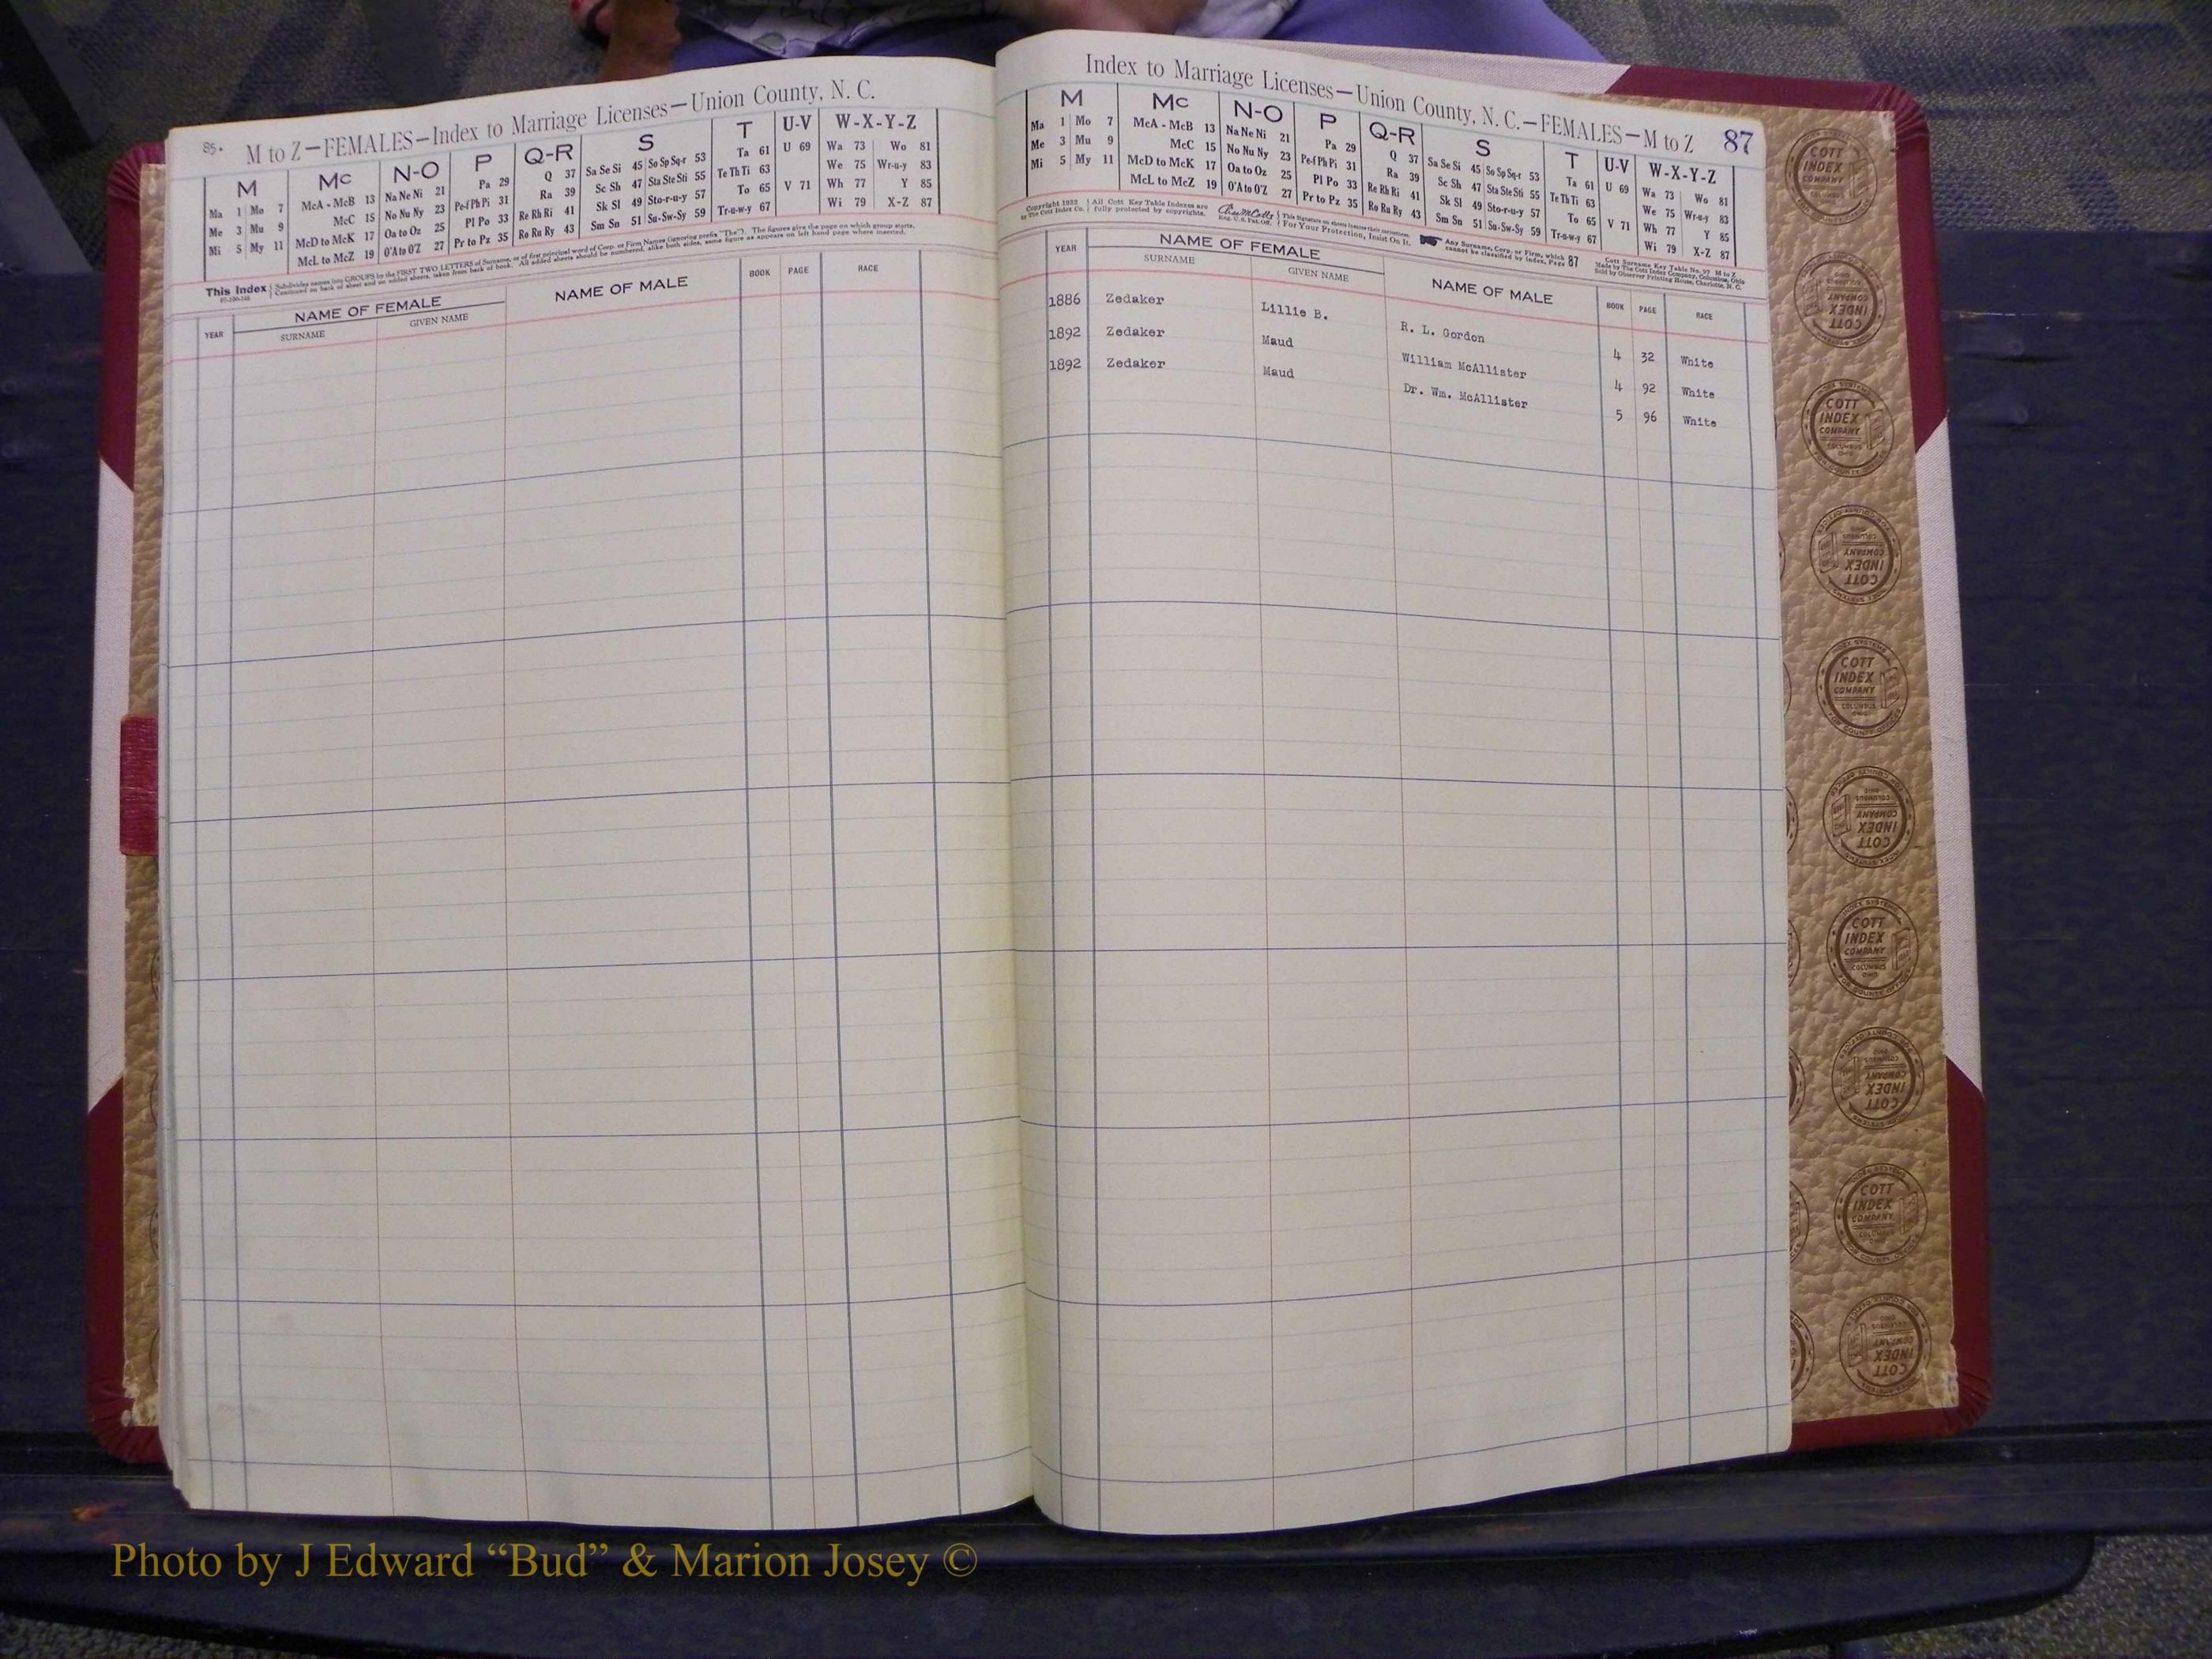 85.
M to Z—FEMALES—Index to Marriage Licenses—Union County, N. C.
M Mc N-O P Q-R S T U-V W-X-Y-Z
Ma 1 Mo 7 McA - McB 13 Na Ne Ni 21 Pa 29 Q 37 Sa Se Si 45 So Sp Sq-r 53 Ta 61 U 69 Wa 73 Wo 81
Me 3 Mu 9 McC 15 No Nu Ny 23 Pe-f Ph Pi 31 Ra 39 Sc Sh 47 Sta Ste Sti 55 Te Th Ti 63 We 75 Wr-u-y 83
Mi 5 My 11 McD to McK 17 Oa to Oz 25 Pl Po 33 Re Rh Ri 41 Sk Sl 49 Sto-r-u-y 57 To 65 V 71 Wh 77 Y 85
McL to McZ 19 O'A to O'Z 27 Pr to Pz 35 Ro Ru Ry 43 Sm Sn 51 Su-Sw-Sy 59 Tr-u-w-y 67 Wi 79 X-Z 87
This Index Subdivides names into GROUPS by the FIRST TWO LETTERS of Surname, or of first principal word of Corp. or Firm Names (ignoring prefix "The"). The figures give the page on which group starts.
Continued on back of sheet and on added sheets, taken from back of book. All added sheets should be numbered, alike both sides, same figure as appears on left hand page where inserted.
YEAR NAME OF FEMALE NAME OF MALE BOOK PAGE RACE
SURNAME GIVEN NAME
Index to Marriage Licenses—Union County, N. C.—FEMALES—M to Z 87
M Mc N-O P Q-R S T U-V W-X-Y-Z
Ma 1 Mo 7 McA - McB 13 Na Ne Ni 21 Pa 29 Q 37 Sa Se Si 45 So Sp Sq-r 53 Ta 61 U 69 Wa 73 Wo 81
Me 3 Mu 9 McC 15 No Nu Ny 23 Pe-f Ph Pi 31 Ra 39 Sc Sh 47 Sta Ste Sti 55 Te Th Ti 63 We 75 Wr-u-y 83
Mi 5 My 11 McD to McK 17 Oa to Oz 25 Pl Po 33 Re Rh Ri 41 Sk Sl 49 Sto-r-u-y 57 To 65 V 71 Wh 77 Y 85
McL to McZ 19 O'A to O'Z 27 Pr to Pz 35 Ro Ru Ry 43 Sm Sn 51 Su-Sw-Sy 59 Tr-u-w-y 67 Wi 79 X-Z 87
Copyright 1932 All Cott Key Table Indexes are
by The Cott Index Co. fully protected by copyrights.
Reg. U. S. Pat. Off. For Your Protection, Insist On It.
Any Surname, Corp. or Firm, which
cannot be classified by Index, Page 87
Cott Surname Key Table No. 97 M to Z
Made by The Cott Index Company, Columbus, Ohio
Sold by Observer Printing House, Charlotte, N. C.
YEAR NAME OF FEMALE NAME OF MALE BOOK PAGE RACE
SURNAME GIVEN NAME
1886 Zedaker Lillie B. R. L. Gordon 4 32 White
1892 Zedaker Maud William McAllister 4 92 White
1892 Zedaker Maud Dr. Wm. McAllister 5 96 White
COTT INDEX COMPANY
COTT INDEX COMPANY
COTT INDEX COMPANY COLUMBUS OHIO
COTT INDEX COMPANY COLUMBUS OHIO
COTT INDEX COMPANY COLUMBUS OHIO
COTT INDEX COMPANY COLUMBUS OHIO
COTT INDEX COMPANY COLUMBUS OHIO
COTT INDEX COMPANY COLUMBUS OHIO
COTT INDEX COMPANY
COTT INDEX COMPANY COLUMBUS OHIO
Photo by J Edward “Bud” & Marion Josey ©